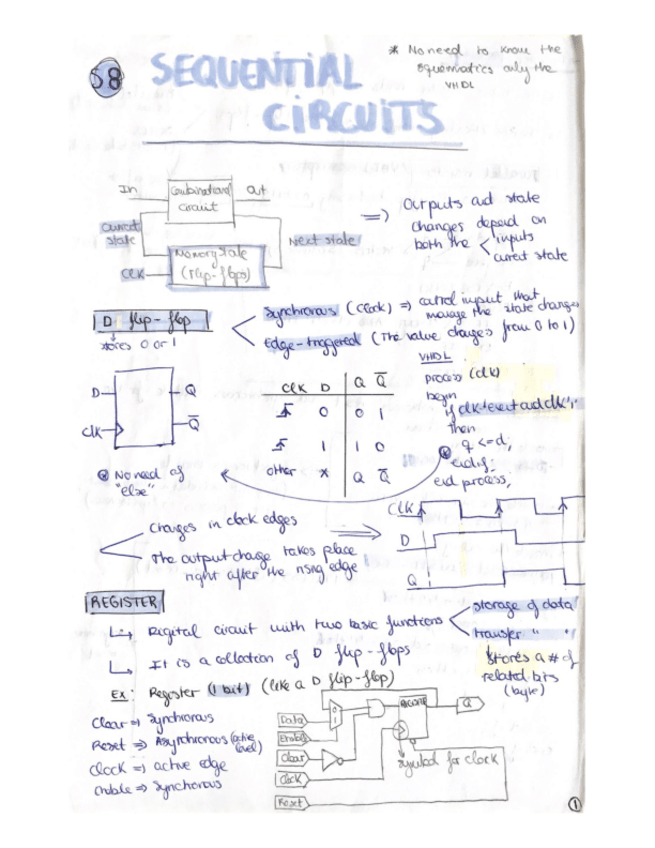 S8 SEQUENTIAL CIRCUITS
* No need to know the
squematics only the
VHDL
In
Combinational
circuit
Out
Current
state
Memory state
(Flip-flops)
Next state
CLK
=) Outputs and state
changes depend on
both the < inputs
current state
D flip-flop
stores 0 or 1
Synchronous (clock) => control input that
manage the state changes
Edge-triggered (The value changes from 0 to 1)
VHDL
process (clk)
begin
if clk'event and clk'1'
then
q <= d;
end if;
end process;
D
Q
CLK
Q̅
CLK D Q Q̅
0 0 1
1 1 0
other x Q Q̅
No need of
"else"
Changes in clock edges
The output change takes place
right after the rising edge
CLK
D
Q
REGISTER
Digital circuit with two basic functions < storage of data
transfer " "
It is a collection of D flip-flops
Stores a # of
related bits
(byte)
Ex: Register (1 bit) (like a D flip-flop)
Clear => Synchronous
Reset => Asynchronous (active
level)
Clock => active edge
enable => Synchronous
Data
Enable
Clear
Clock
Reset
0
1
Q
symbol for clock
1